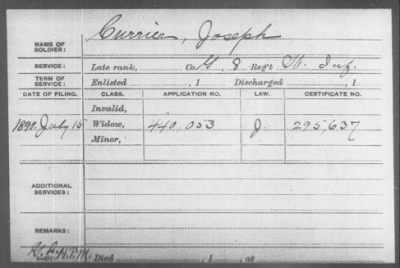 NAME OF SOLDIER: Currier, Joseph
SERVICE: Late rank, Co. G, 8 Reg't Inf.
TERM OF SERVICE: Enlisted , 1 Discharged , 1
DATE OF FILING. CLASS. APPLICATION NO. LAW. CERTIFICATE NO.
Invalid,
1890, July 15 Widow, 440,053 J. 295,637
Minor,
ADDITIONAL SERVICES:
REMARKS:
Died , 1 , at